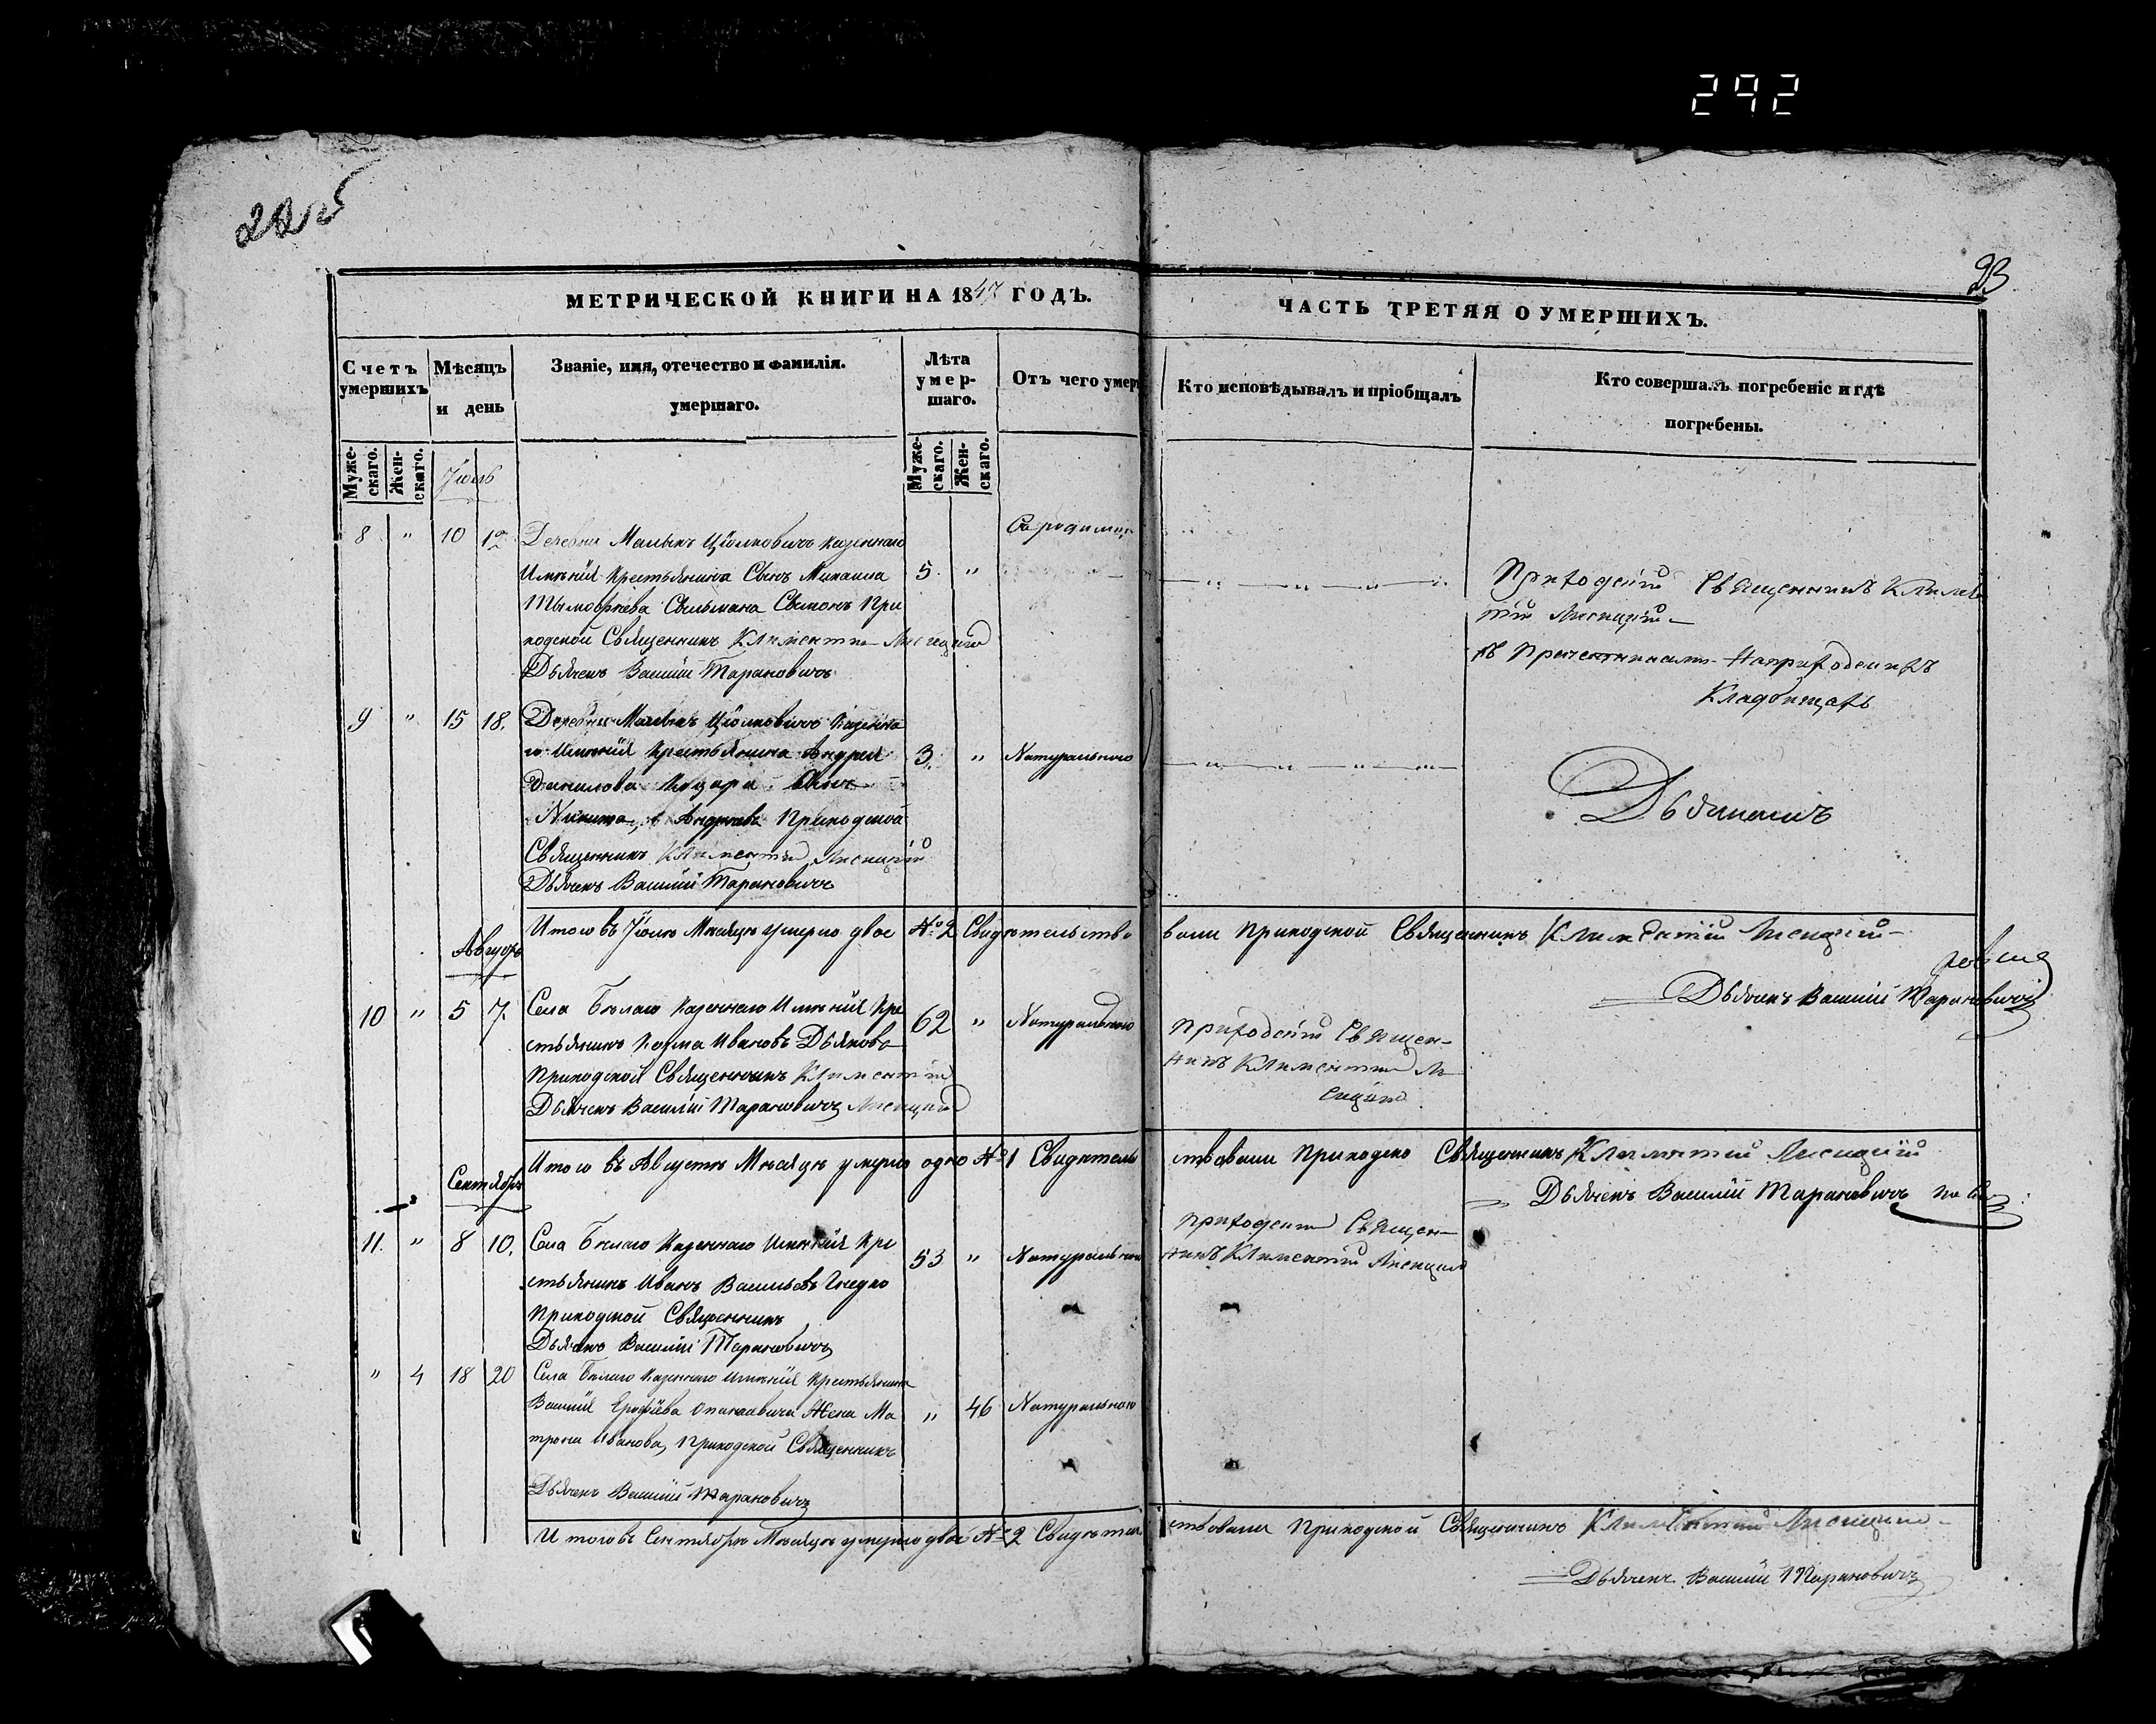 292
23
МЕТРИЧЕСКОЙ КНИГИ НА 1847 ГОДЪ.
ЧАСТЬ ТРЕТЯЯ О УМЕРШИХЪ.
Счетъ умершихъ
Мѣсяцъ и день
Званіе, имя, отечество и фамилія.
умершаго.
Лѣта умер-
шаго.
Отъ чего умер
Кто исповѣдывалъ и пріобщалъ
Кто совершалъ погребеніе и гдѣ
погребены.
Муже-
скаго.
Жен-
скаго.
Муже-
скаго.
Жен-
скаго.
Іюль
8 " 10 Деревни Малыхъ Цѣолковичъ казеннаго
Имѣнія Крестьянина Сынъ Михаила 5. "
Приходскій Священникъ Климен
тій Лисицкій
ходской Священникъ Климентій Лисицкій
Дьячекъ Василій Тарановичъ
Кладбищахъ
9 " 15 18. Деревни Малыхъ Цѣолковичъ Казенна
го Имѣнія Крестьянина Андрея 3. " Натурально
Данилова Сынъ
Никита Приходской
Священникъ Климентій Лисицкій
Дьячекъ Василій Тарановичъ
Итого въ Іюлѣ Мѣсяцѣ умерло двое № 2 Свидѣтельство
вали Приходской Священникъ Климентій Лисицкій
Дьячекъ Василій Тарановичъ
Августъ
10 " 5 7. Села Бѣлаго Казеннаго Имѣнія Кре
стьянинъ Козма Ивановъ Дьяково 62 " Натурально
Приходской Священникъ Климентій
Дьячекъ Василій Тарановичъ Лисицкій
Приходскій Священ-
никъ Климентій Ли
сицкій
Итого въ Августѣ Мѣсяцѣ умерло одно № 1 Свидѣтель
ствовали Приходско Священникъ Климентій Лисицкій
Дьячекъ Василій Тарановичъ
Сентябрь
11. " 8 10. Села Бѣлаго Казеннаго Имѣнія Кре
стьянинъ Иванъ Васильевъ 53 " Натурально
Приходской Священникъ
Дьячекъ Василій Тарановичъ
Приходскій Священ-
никъ Климентій Лисицкій
" 4 18 20 Села Бѣлаго Казеннаго Имѣнія Крестьянина
Василія Ерофѣева Жена Ма " 46 Натурально
трона Иванова, Приходской Священникъ
Дьячекъ Василій Тарановичъ
Итого въ Сентябрѣ Мѣсяцѣ умерло двое № 2 Свидѣтель
ствовали Приходской Священникъ Климентій Лисицкій
Дьячекъ Василій Тарановичъ